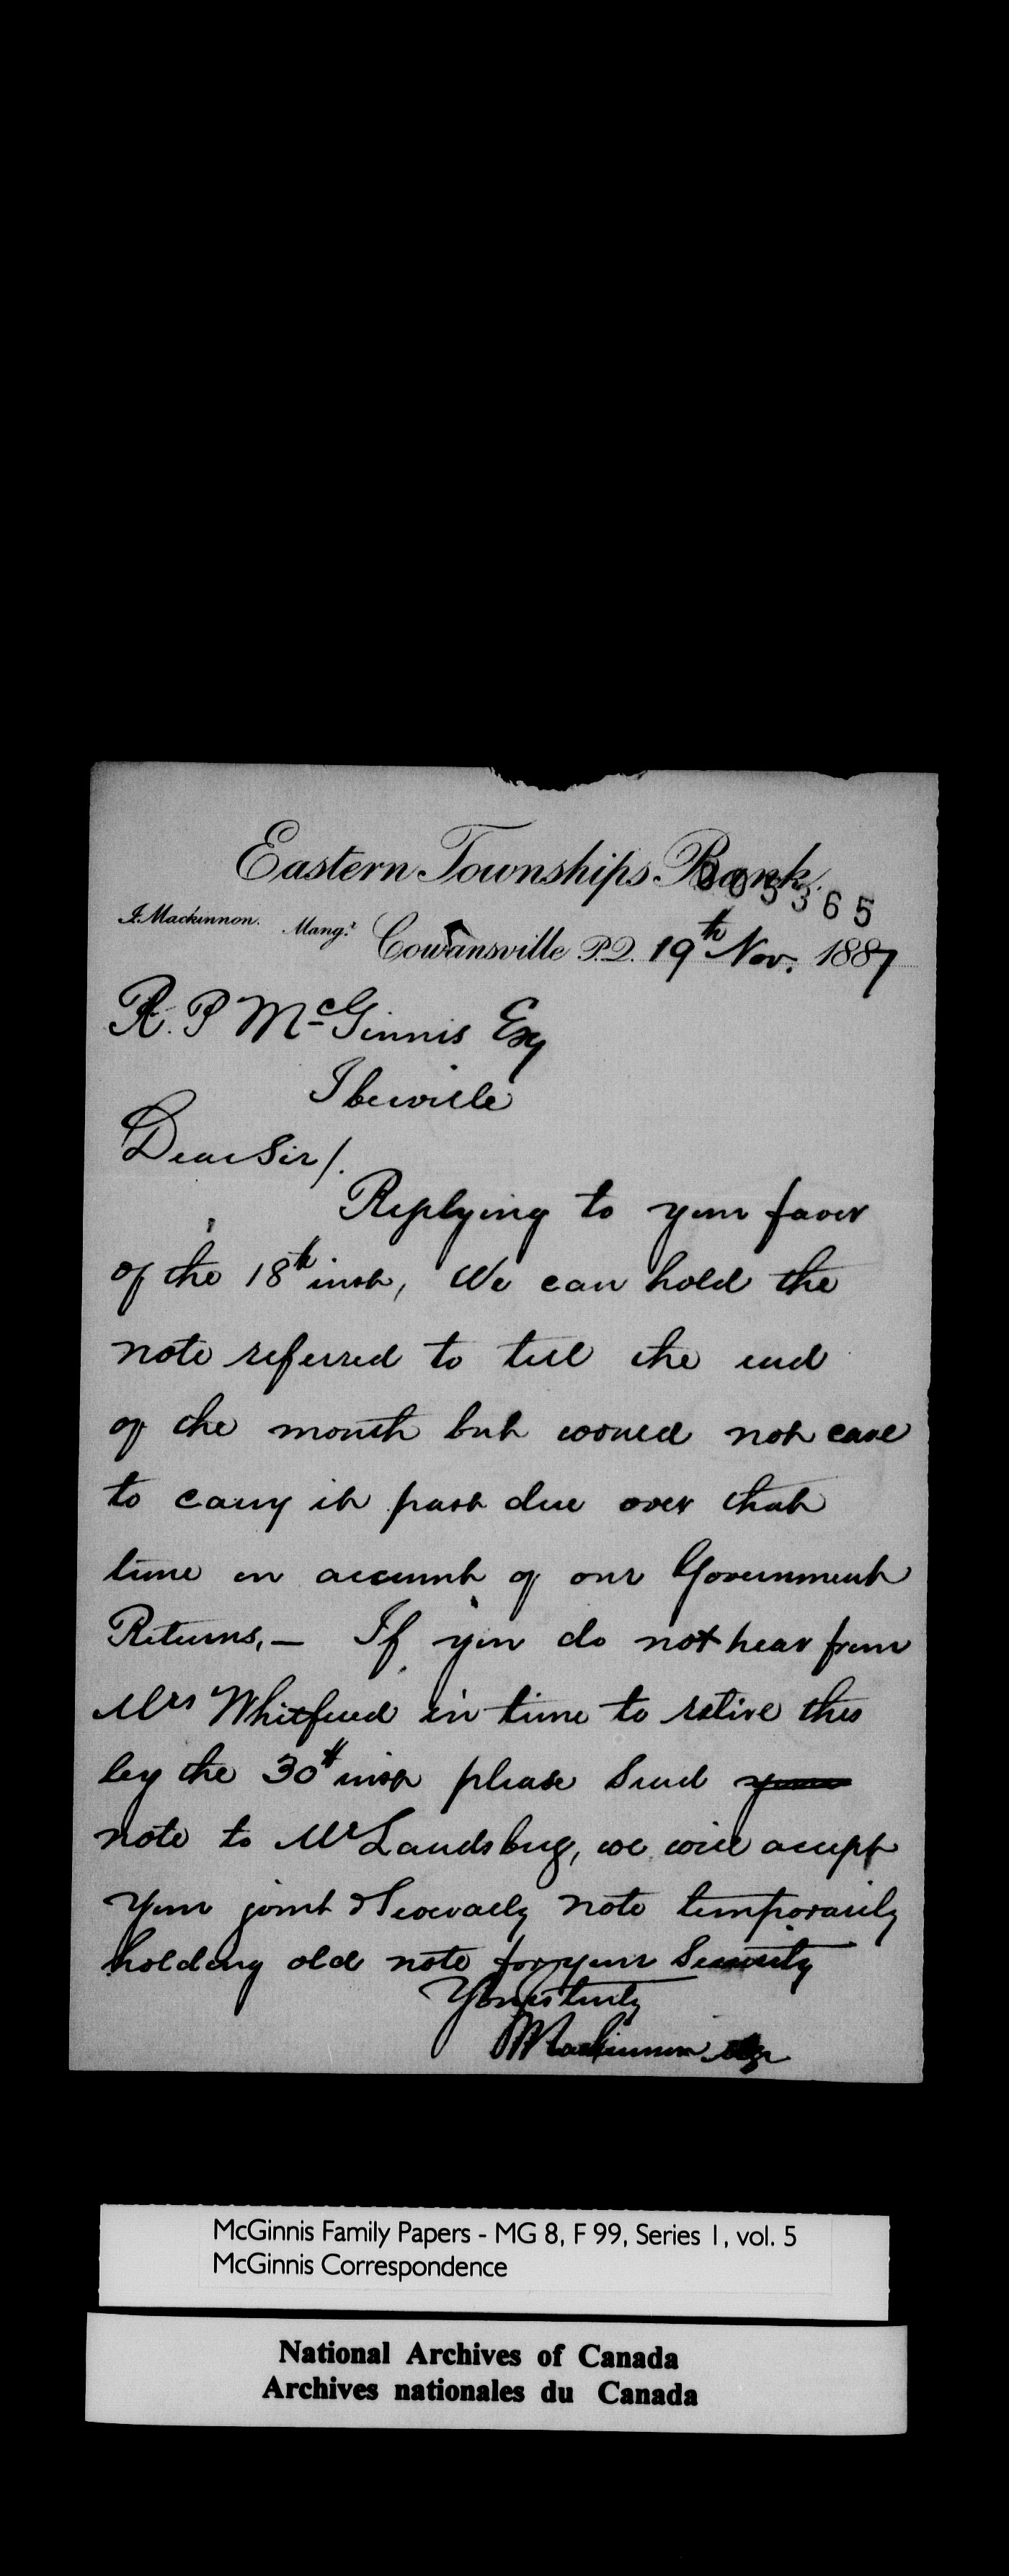 Eastern Townships Bank.
005365
J. Mackinnon. Mang.r
Cowansville P.Q. 19th Nov. 1887
R. P McGinnis Esq
Iberville
Dear Sir/.
Replying to your favor
of the 18th inst, We can hold the
note referred to till the end
of the month but would not care
to carry it past due over that
time on account of our Government
Returns,— If you do not hear from
Mrs Whitfield in time to retire this
by the 30th inst please send your
note to Mr Landsberg, we will accept
your joint & severally note temporarily
holding old note for your security
Yours truly
Mackinnon Mgr
McGinnis Family Papers - MG 8, F 99, Series 1, vol. 5
McGinnis Correspondence
National Archives of Canada
Archives nationales du Canada